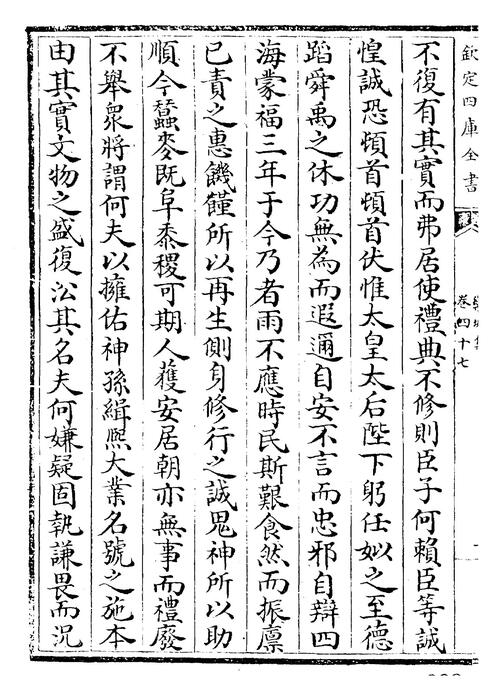 欽定四庫全書
卷四十七
不復有其實而弗居使禮典不修則臣子何賴臣等誠
惶誠恐頓首頓首伏惟太皇太后陛下躬任姒之至德
蹈舜禹之休功無為而遐邇自安不言而忠邪自辯四
海蒙福三年于今乃者雨不應時民斯艱食然而振廪
已責之惠饑饉所以再生側身修行之誠鬼神所以助
順今蠶麥既阜黍稷可期人獲安居朝亦無事而禮廢
不舉衆將謂何夫以擁佑神孫緝熙大業名號之施本
由其實文物之盛復㳂其名夫何嫌疑固執謙畏而況